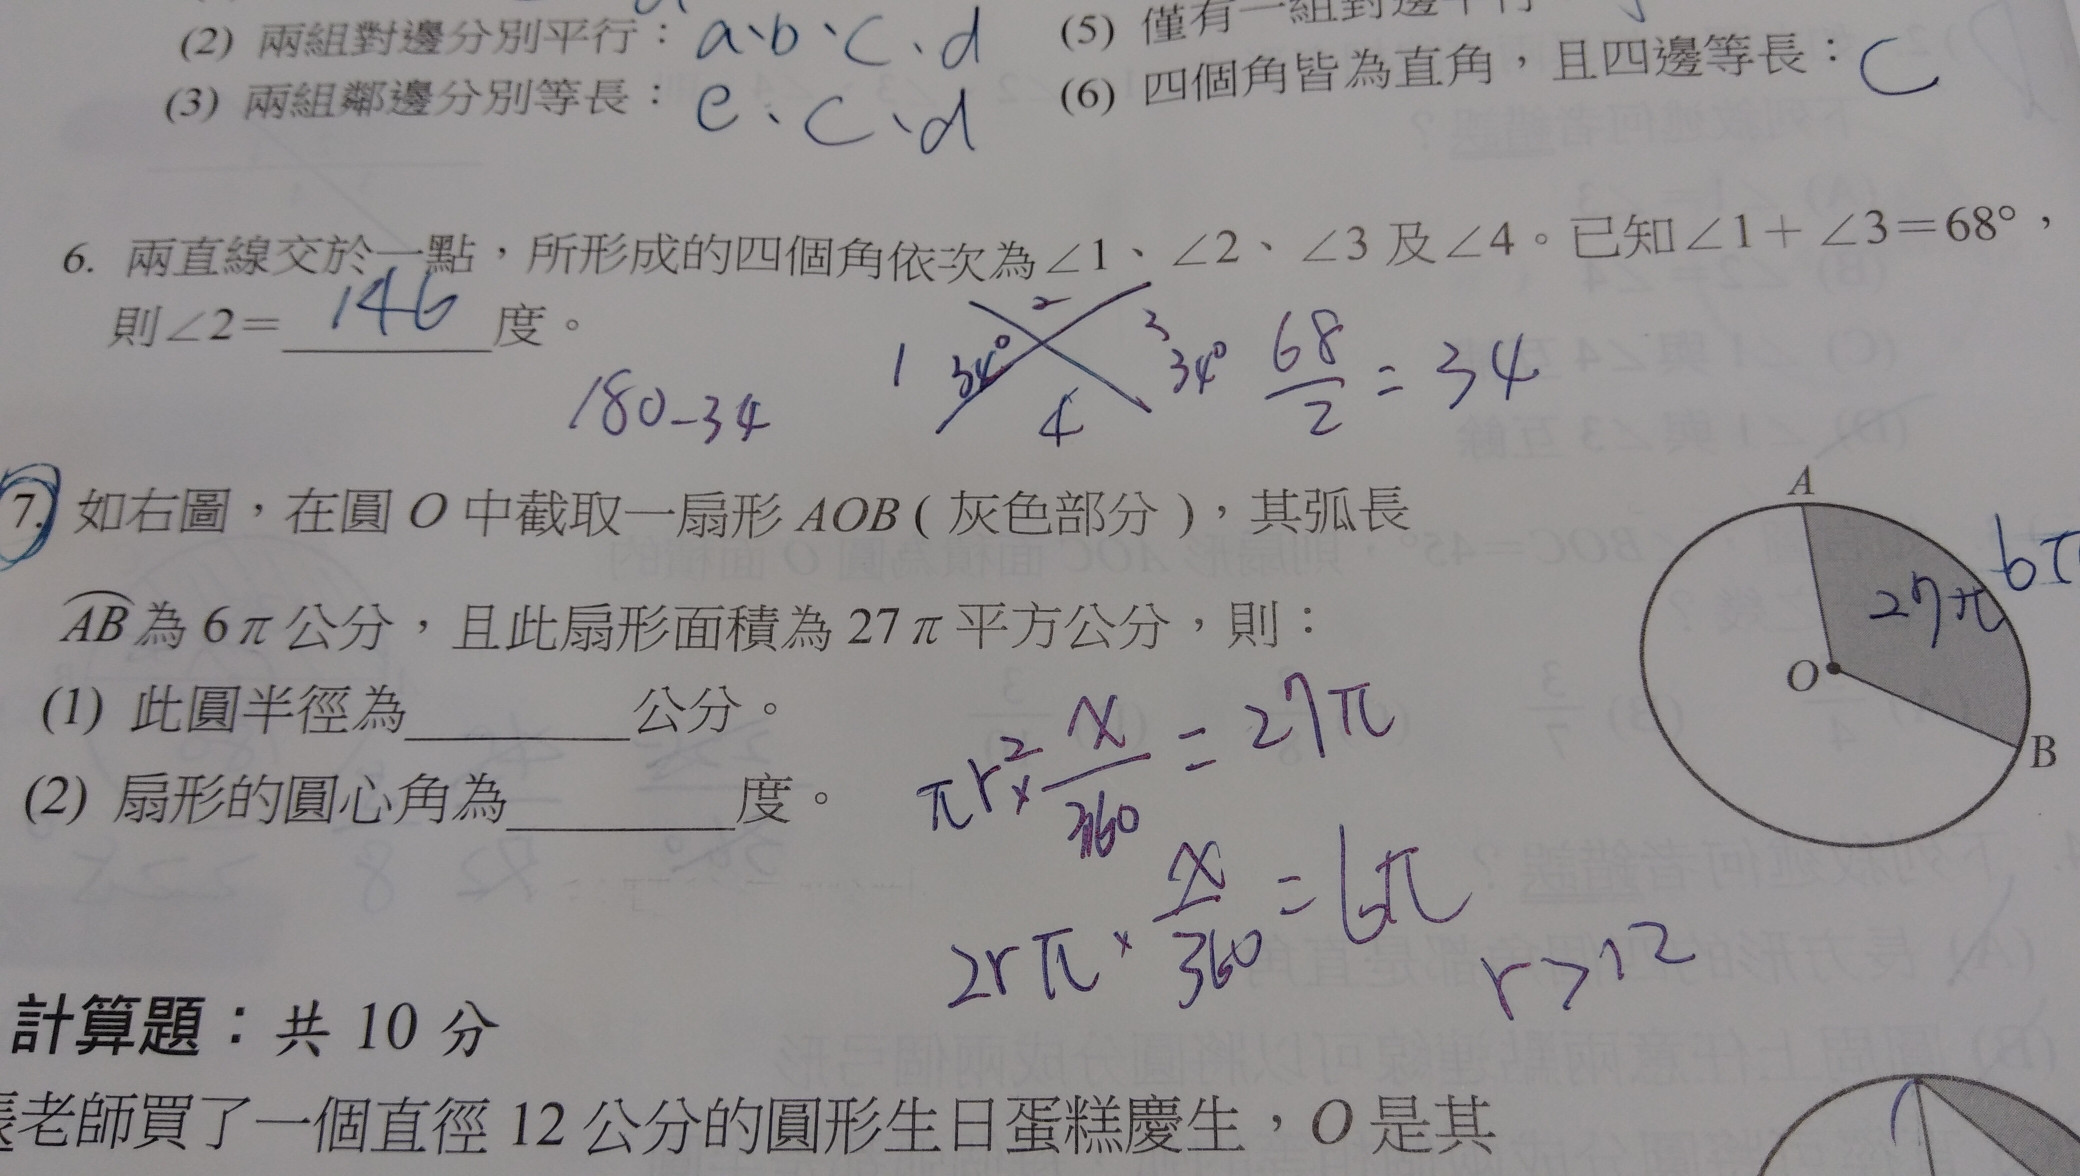 (2) 兩組對邊分別平行：a、b、c、d
(5) 僅有一組對邊平行
(3) 兩組鄰邊分別等長：e、c、d
(6) 四個角皆為直角，且四邊等長：c
6. 兩直線交於一點，所形成的四個角依次為∠1、∠2、∠3 及∠4。已知∠1＋∠3＝68°，
則∠2＝146度。
1 34° 2 3 34° 4
68/2 = 34
180-34
7. 如右圖，在圓 O 中截取一扇形 AOB ( 灰色部分 )，其弧長
AB 為 6π 公分，且此扇形面積為 27π 平方公分，則：
(1) 此圓半徑為________公分。
(2) 扇形的圓心角為________度。
A
27π
6π
O
B
πr²× x/360 = 27π
2rπ × x/360 = 6π
r>12
計算題：共 10 分
老師買了一個直徑 12 公分的圓形生日蛋糕慶生，O 是其